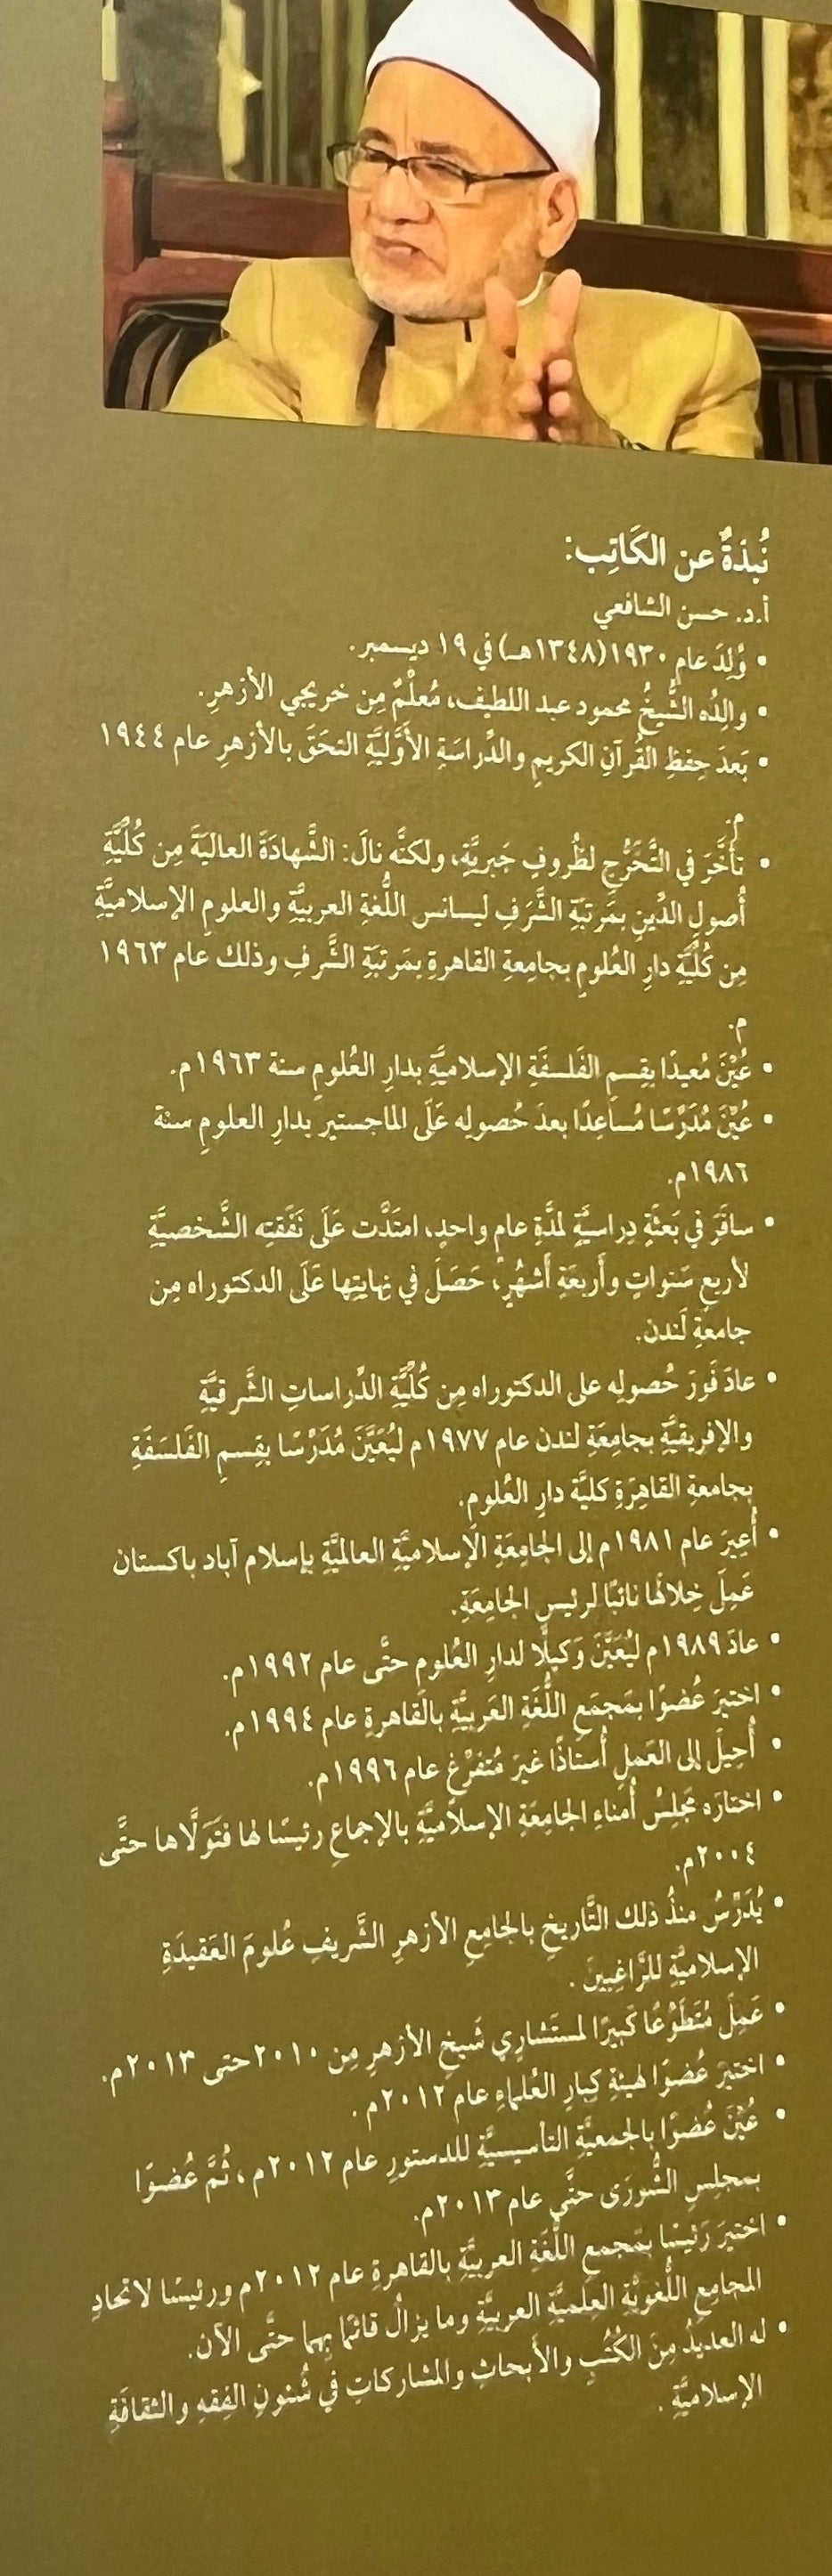 نُبذَةٌ عن الكَاتِب:
أ.د. حسن الشافعي
• وُلِدَ عام ١٩٣٠(١٣٤٨هـ) في ١٩ ديسمبر.
• والِدُه الشَّيخُ محمود عبد اللطيف، مُعلِّمٌ مِن خريجي الأزهرِ.
• بَعدَ حِفظِ القُرآنِ الكريمِ والدِّراسَةِ الأَوَّليَّةِ التحَقَ بالأزهرِ عام ١٩٤٤
م.
• تأَخَّرَ في التَّخَرُّجِ لظُروفٍ جَبريَّةٍ، ولكنَّه نالَ: الشَّهادَةَ العاليَةَ مِن كُلِّيَّةِ
أُصولِ الدِّينِ بمَرتبَةِ الشَّرَفِ ليسانس اللُّغةِ العربيَّةِ والعلومِ الإسلاميَّةِ
مِن كُلِّيَّةِ دارِ العُلومِ بجامِعةِ القاهرةِ بمَرتبَةِ الشَّرفِ وذلك عام ١٩٦٣
م.
• عُيِّنَ مُعيدًا بقِسمِ الفَلسفَةِ الإسلاميَّةِ بدارِ العُلومِ سنة ١٩٦٣م.
• عُيِّنَ مُدَرِّسًا مُساعِدًا بعدَ حُصولِه عَلَى الماجستير بدارِ العلومِ سنة
١٩٨٦م.
• سافَرَ في بَعثَةٍ دِراسيَّةٍ لمدَّةِ عام واحدٍ، امتَدَّت عَلَى نَفَقتِه الشَّخصيَّةِ
لأربعِ سَنواتٍ وأَربعَةِ أَشهُرٍ، حَصَلَ في نِهايتِها عَلَى الدكتوراه مِن
جامعَةِ لَندن.
• عادَ فَورَ حُصولِه على الدكتوراه مِن كُلِّيَّةِ الدِّراساتِ الشَّرقيَّةِ
والإفريقيَّةِ بجامِعَةِ لندن عام ١٩٧٧م ليُعَيَّنَ مُدَرِّسًا بقِسمِ الفَلسَفَةِ
بجامعةِ القاهِرَةِ كليَّة دارِ العُلوم.
• أُعِيرَ عام ١٩٨١م إلى الجامِعَةِ الإسلاميَّةِ العالميَّةِ بإسلام آباد باكستان
عَمِلَ خِلالَها نائبًا لرئيسِ الجامِعَةِ.
• عادَ ١٩٨٩م ليُعَيَّنَ وَكيلًا لدارِ العُلومِ حتَّى عام ١٩٩٢م.
• اختيرَ عُضوًا بمَجمَعِ اللُّغَةِ العَربيَّةِ بالقاهرةِ عام ١٩٩٤م.
• أُحِيلَ إلى العَملِ أُستاذًا غيرَ مُتفرِّغٍ عام ١٩٩٦م.
• اختارَه مَجلِسُ أُمناءِ الجامِعَةِ الإسلاميَّةِ بالإجماعِ رئيسًا لها فتَوَلَّاها حتَّى
٢٠٠٤م.
• يُدَرِّسُ منذُ ذلك التَّاريخِ بالجامِعِ الأزهرِ الشَّريفِ عُلومَ العَقيدَةِ
الإسلاميَّةِ للرَّاغِبينَ .
• عَمِلَ مُتَطَوِّعًا كَبيرًا لمستَشاري شَيخِ الأزهرِ مِن ٢٠١٠ حتى ٢٠١٣م.
• اختيرَ عُضوًا لهيئةِ كِبارِ العُلماءِ عام ٢٠١٢م .
• عُيِّنَ عُضوًا بالجمعيَّةِ التأسيسيَّةِ للدستورِ عام ٢٠١٢م، ثُمَّ عُضوًا
بمجلِسِ الشُّورَى حتَّى عام ٢٠١٣م.
• اختيرَ رَئيسًا بمَجمعِ اللُّغَةِ العربيَّةِ بالقاهرةِ عام ٢٠١٢م ورئيسًا لاتحادِ
المجامِعِ اللُّغويَّةِ العِلميَّةِ العربيَّةِ وما يزالُ قائمًا بِهما حتَّى الآن.
• له العديدُ مِنَ الكُتُبِ والأَبحاثِ والمشاركاتِ في شُئونِ الفِقهِ والثقافَةِ
الإسلاميَّةِ .